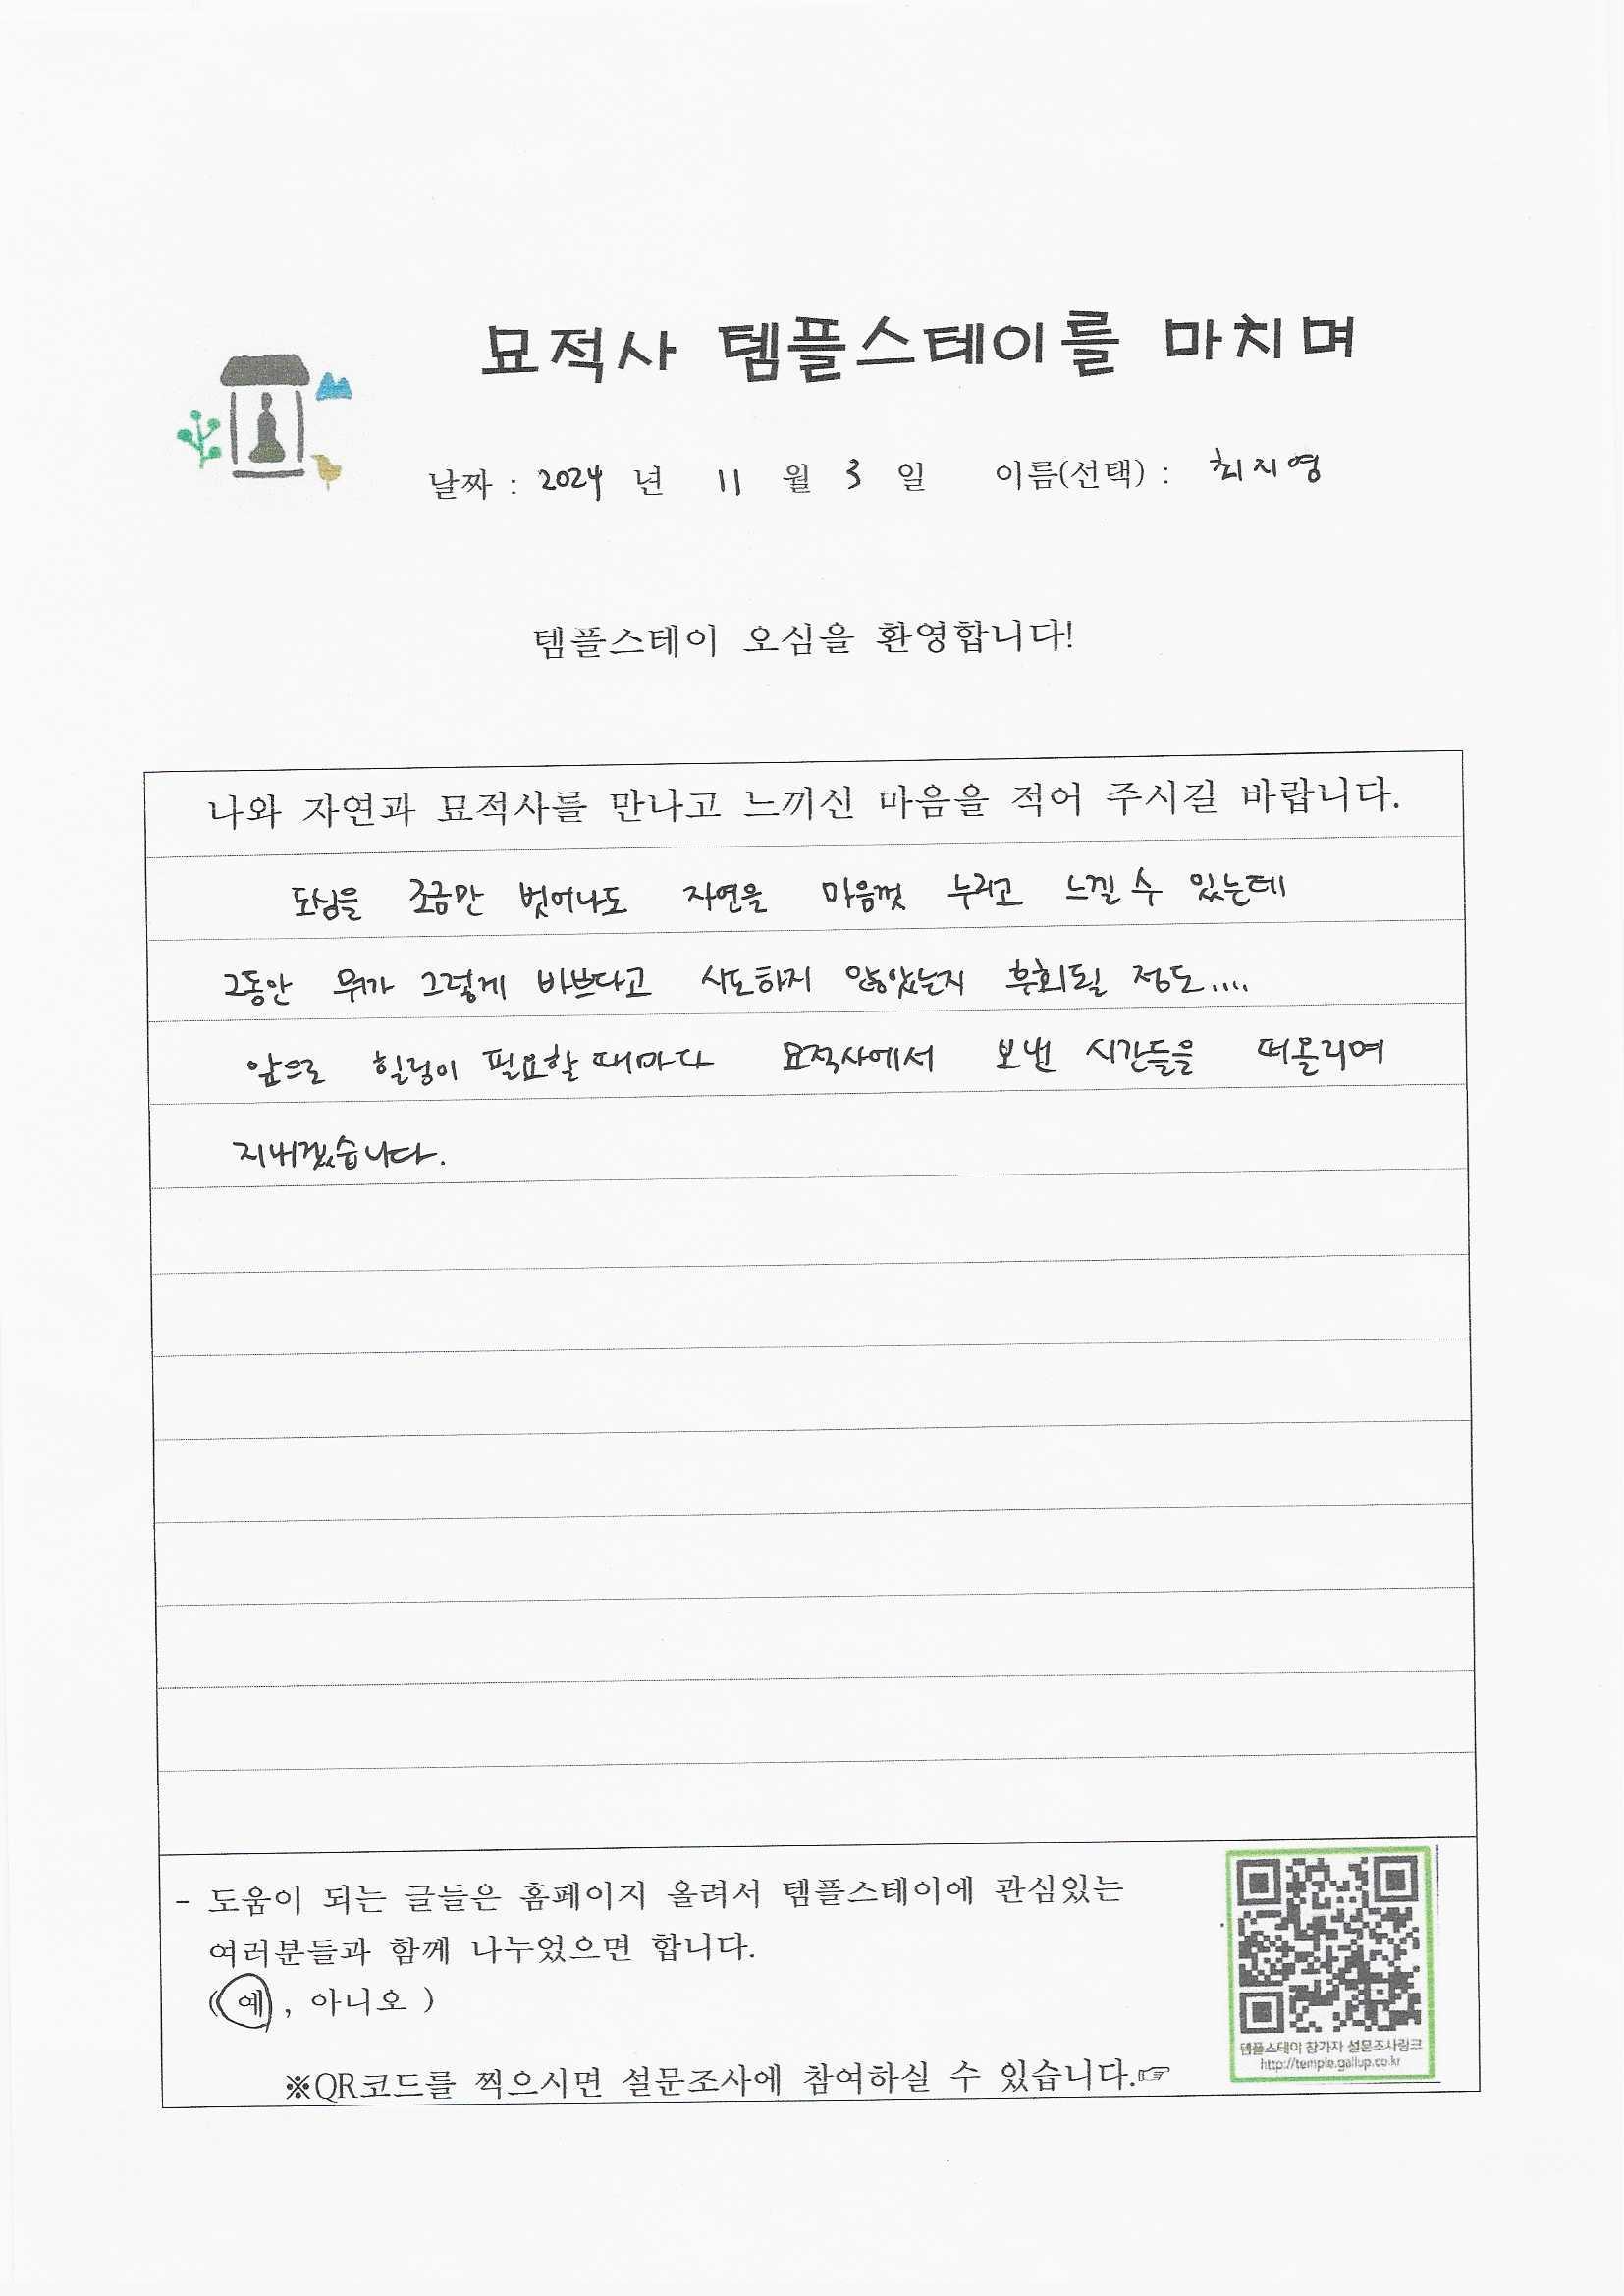 묘적사 템플스테이를 마치며
날짜 : 2024 년 11 월 3 일 이름(선택) : 최지영
템플스테이 오심을 환영합니다!
나와 자연과 묘적사를 만나고 느끼신 마음을 적어 주시길 바랍니다.
도심을 조금만 벗어나도 자연을 마음껏 누리고 느낄 수 있는데
그동안 뭐가 그렇게 바쁘다고 시도하지 않았는지 후회될 정도....
앞으로 힐링이 필요할 때마다 묘적사에서 보낸 시간들을 떠올리며
지내겠습니다.
- 도움이 되는 글들은 홈페이지 올려서 템플스테이에 관심있는
여러분들과 함께 나누었으면 합니다.
(예, 아니오 )
※QR코드를 찍으시면 설문조사에 참여하실 수 있습니다.☞
템플스테이 참가자 설문조사링크
http://temple.gallup.co.kr